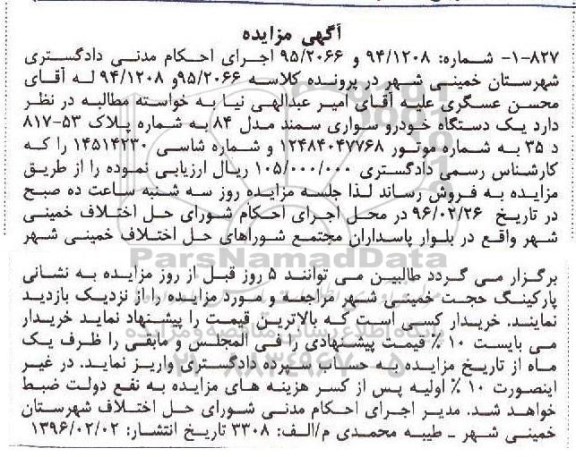 آگهی مزایده
۱-۸۲۷- شماره: ۹۴/۱۲۰۸ و ۹۵/۲۰۶۶ اجرای احکام مدنی دادگستری
شهرستان خمینی شهر در پرونده کلاسه ۹۵/۲۰۶۶و ۹۴/۱۲۰۸ له آقای
محسن عسگری علیه آقای امیر عبدالهی نیا به خواسته مطالبه در نظر
دارد یک دستگاه خودرو سواری سمند مدل ۸۴ به شماره پلاک ۵۳-۸۱۷
د ۳۵ به شماره موتور ۱۲۴۸۴۰۴۷۷۶۸ و شماره شاسی ۱۴۵۱۴۲۳۰ را که
کارشناس رسمی دادگستری ۱۰۵/۰۰۰/۰۰۰ ریال ارزیابی نموده را از طریق
مزایده به فروش رساند لذا جلسه مزایده روز سه شنبه ساعت ده صبح
در تاریخ ۹۶/۰۲/۲۶ در محل اجرای احکام شورای حل اختلاف خمینی
شهر واقع در بلوار پاسداران مجتمع شوراهای حل اختلاف خمینی شهر
ParsNamadData
برگزار می گردد طالبین می توانند ۵ روز قبل از روز مزایده به نشانی
پارکینگ حجت خمینی شهر مراجعه و مورد مزایده را از نزدیک بازدید
نمایند. خریدار کسی است که بالاترین قیمت را پیشنهاد نماید خریدار
می بایست ۱۰ ٪ قیمت پیشنهادی را فی المجلس و مابقی را ظرف یک
ماه از تاریخ مزایده به حساب سپرده دادگستری واریز نماید. در غیر
اینصورت ۱۰ ٪ اولیه پس از کسر هزینه های مزایده به نفع دولت ضبط
خواهد شد. مدیر اجرای احکام مدنی شورای حل اختلاف شهرستان
خمینی شهر ـ طیبه محمدی م/الف: ۳۳۰۸ تاریخ انتشار: ۱۳۹۶/۰۲/۰۲